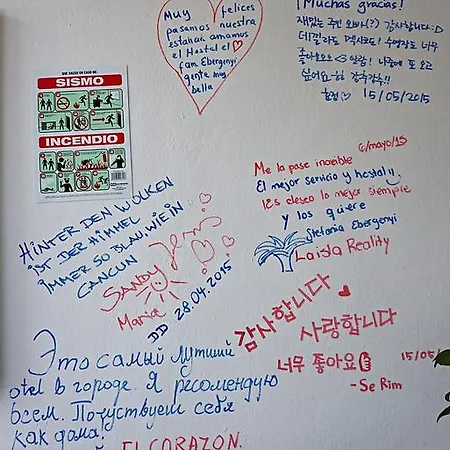 Muy felices
pasamos nuestra
estancia amamos
el Hostel el
fam Ebergenyi
gente muy
bella
¡Muchas gracias!
재밌는 주인 오빠(?) 감사합니다 :D
15/05/2015
QUE HACER EN CASO DE
SISMO
INCENDIO
6/mayo/15
Me la pase increible
El mejor servicio y hostal!!
les deseo lo mejor siempre
y los quiere
Stefania Ebergenyi
Laisla Reality
HINTER DEN WOLKEN
IST DER HIMMEL
IMMER SO BLAU WIE IN
CANCUN
SANDY
Maria
DD 28.04.2015
감사합니다
사랑합니다
너무 좋아요
15/05/
- Se Rim
Это самый лутший
otel в городе. Я рекомендую
всем. Почуствуем себя
как дома!
EL CORAZON.